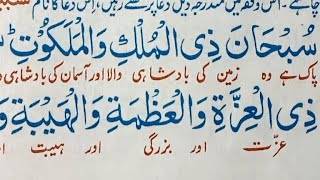 چاہئے۔ اس وقفہ میں مندرجہ ذیل دعا پڑھتے رہیں، اس دعا کا نام
سُبْحَانَ ذِی الْمُلْكِ وَالْمَلَكُوْتِ
پاک ہے وہ زمین کی بادشاہی والا اور آسمان کی بادشاہی
ذِی الْعِزَّةِ وَالْعَظْمَةِ وَالْهَيْبَةِ
عزت اور بزرگی اور ہیبت